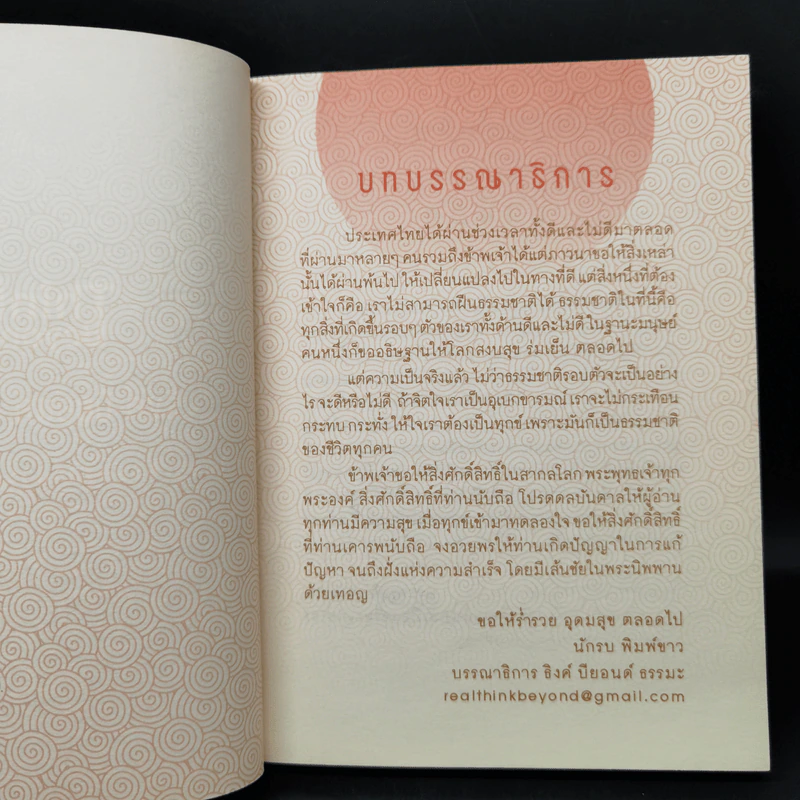 บทบรรณาธิการ
ประเทศไทยได้ผ่านช่วงเวลาทั้งดีและไม่ดีมาตลอด
ที่ผ่านมาหลายๆ คนรวมถึงข้าพเจ้าได้แต่ภาวนาขอให้สิ่งเหล่า
นั้นได้ผ่านพ้นไป ให้เปลี่ยนแปลงไปในทางที่ดี แต่สิ่งหนึ่งที่ต้อง
เข้าใจก็คือ เราไม่สามารถฝืนธรรมชาติได้ ธรรมชาติในที่นี้คือ
ทุกสิ่งที่เกิดขึ้นรอบๆ ตัวของเราทั้งด้านดีและไม่ดี ในฐานะมนุษย์
คนหนึ่งก็ขออธิษฐานให้โลกสงบสุข ร่มเย็น ตลอดไป
แต่ความเป็นจริงแล้ว ไม่ว่าธรรมชาติรอบตัวจะเป็นอย่าง
ไร จะดีหรือไม่ดี ถ้าจิตใจเราเป็นอุเบกขารมณ์ เราจะไม่กระเทือน
กระทบ กระทั่ง ให้ใจเราต้องเป็นทุกข์ เพราะมันก็เป็นธรรมชาติ
ของชีวิตทุกคน
ข้าพเจ้าขอให้สิ่งศักดิ์สิทธิ์ในสากลโลก พระพุทธเจ้าทุก
พระองค์ สิ่งศักดิ์สิทธิ์ที่ท่านนับถือ โปรดดลบันดาลให้ผู้อ่าน
ทุกท่านมีความสุข เมื่อทุกข์เข้ามาทดลองใจ ขอให้สิ่งศักดิ์สิทธิ์
ที่ท่านเคารพนับถือ จงอวยพรให้ท่านเกิดปัญญาในการแก้
ปัญหา จนถึงฝั่งแห่งความสำเร็จ โดยมีเส้นชัยในพระนิพพาน
ด้วยเทอญ
ขอให้ร่ำรวย อุดมสุข ตลอดไป
นักรบ พิมพ์ขาว
บรรณาธิการ ธิงค์ บียอนด์ ธรรมะ
realthinkbeyond@gmail.com